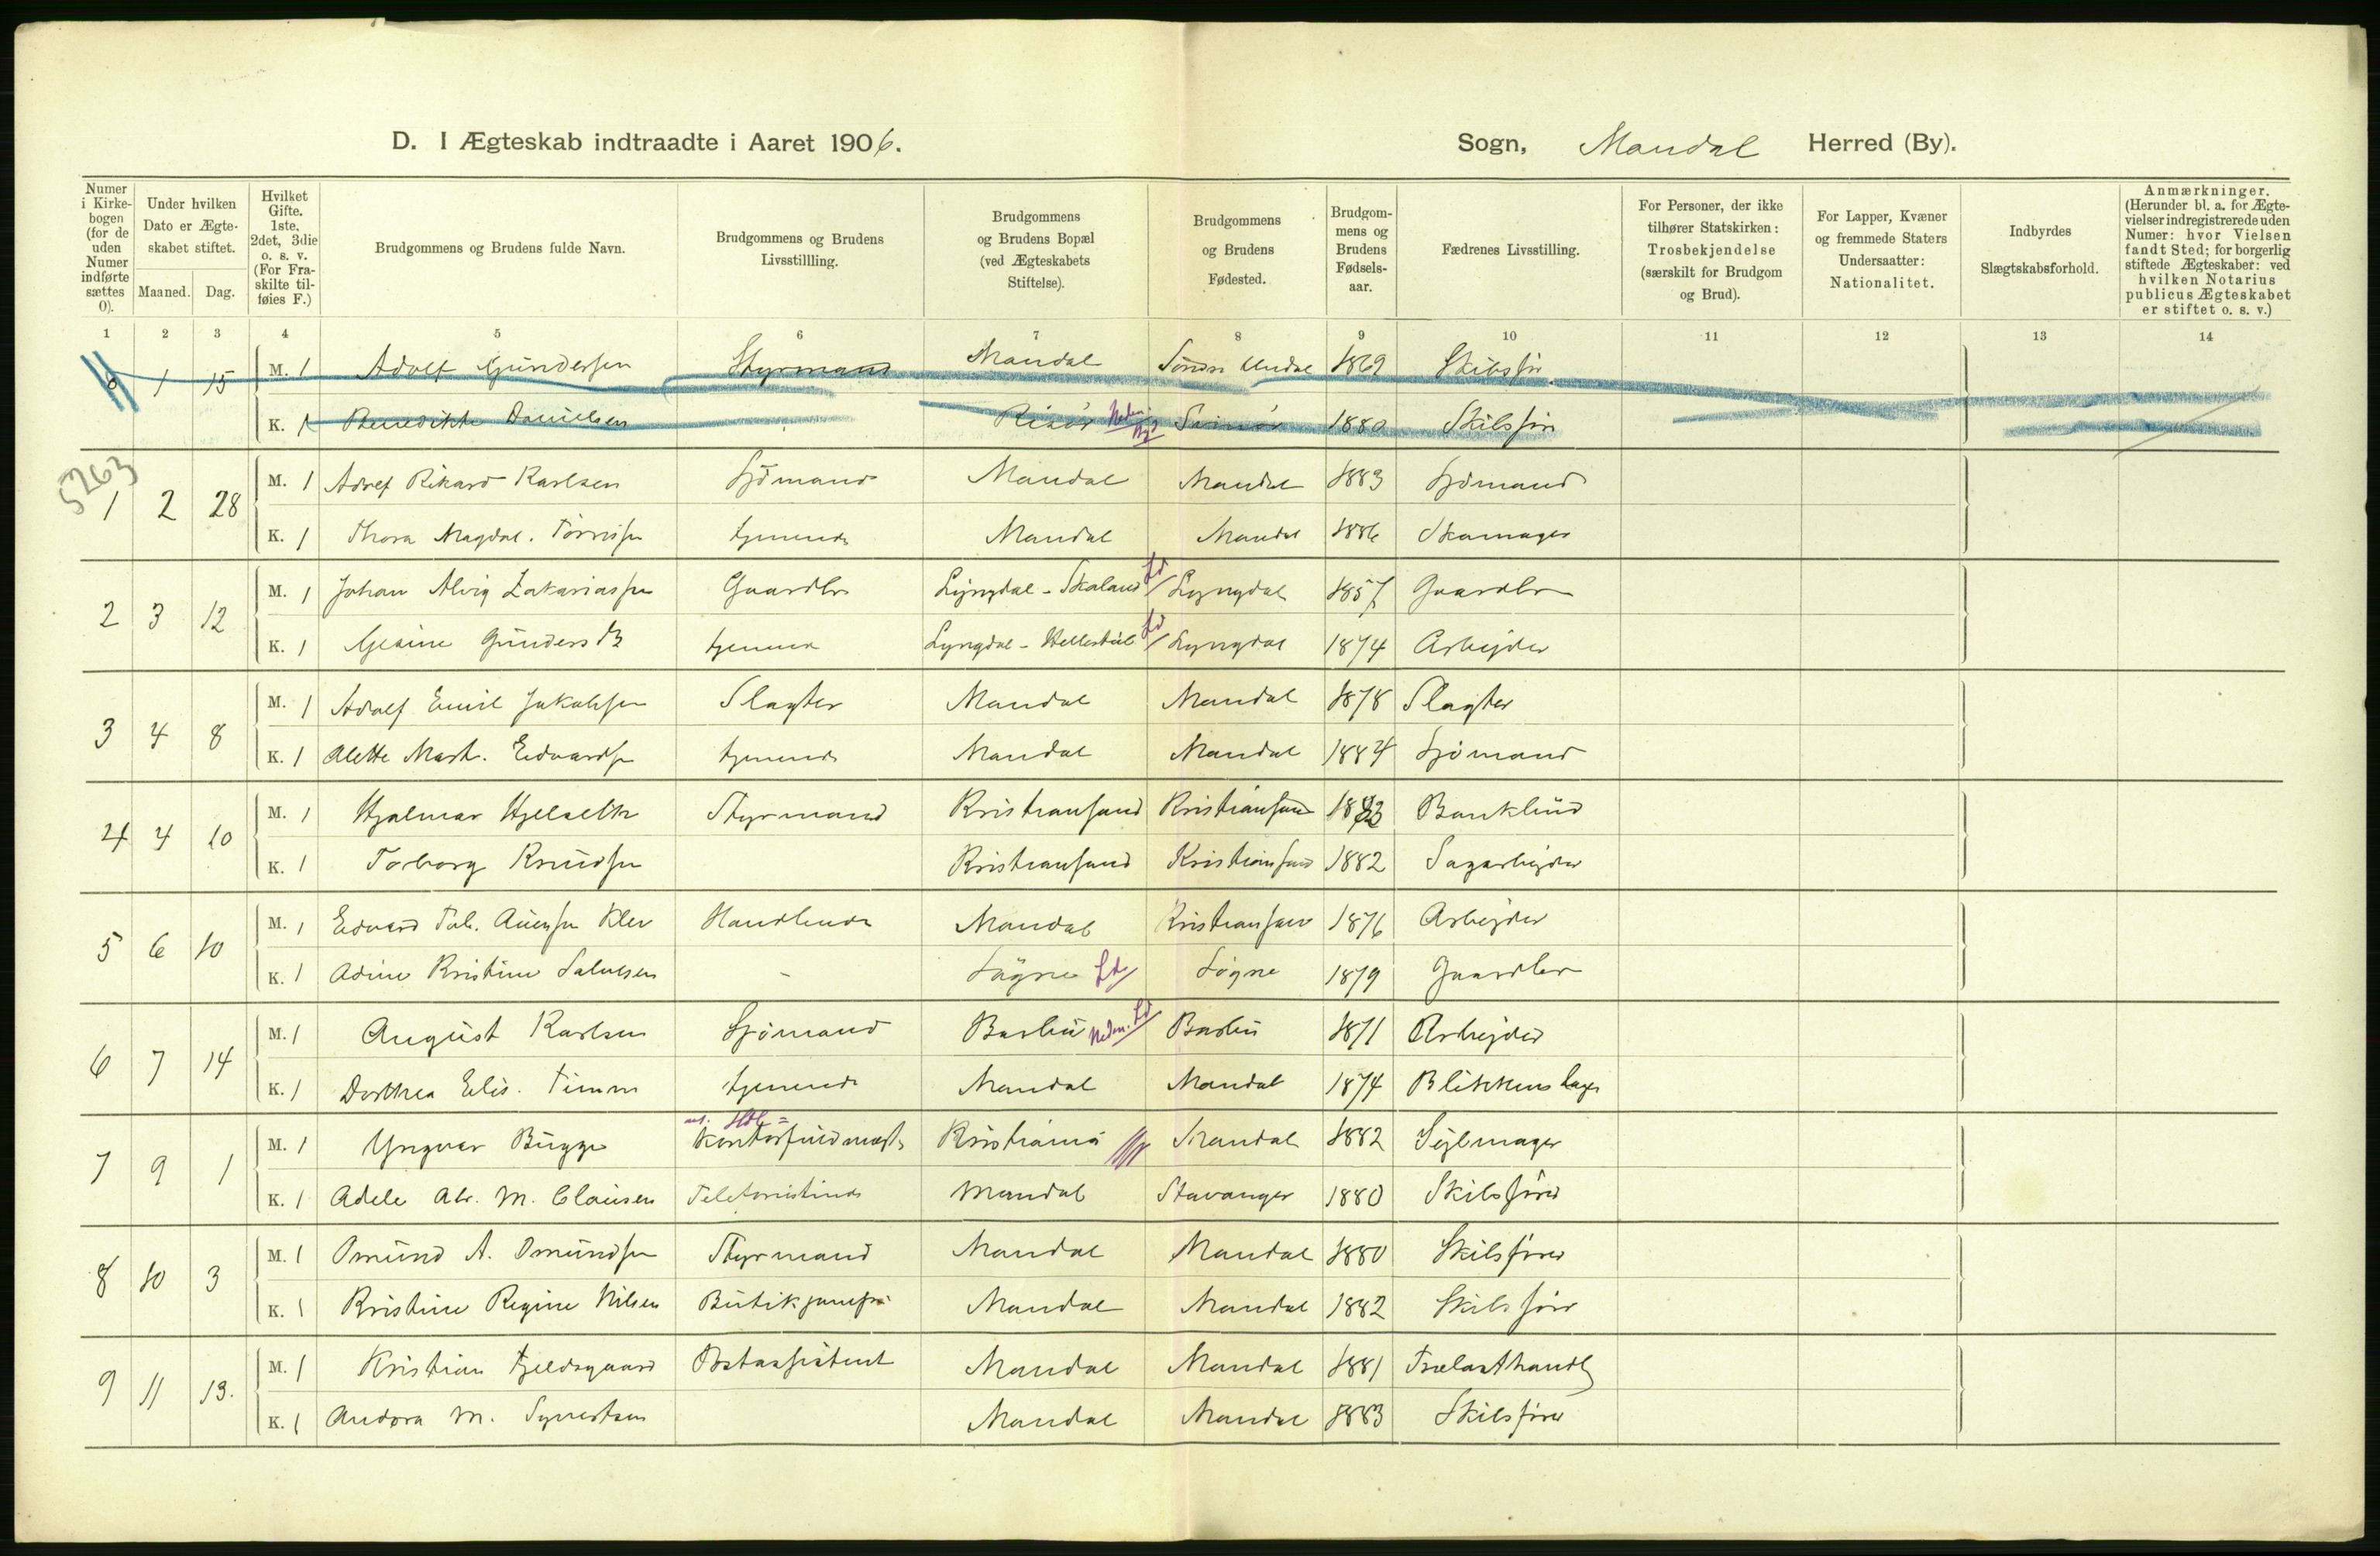 D. I Ægteskab indtraadte i Aaret 1906.
Sogn, Mandal Herred (By).
Numer i Kirkebogen (for de uden Numer indførte sættes 0).
Under hvilken Dato er Ægteskabet stiftet.
Maaned. Dag.
Hvilket Gifte. 1ste, 2det, 3die o. s. v. (For Fraskilte tilføies F.)
Brudgommens og Brudens fulde Navn.
Brudgommens og Brudens Livsstillling.
Brudgommens og Brudens Bopæl (ved Ægteskabets Stiftelse).
Brudgommens og Brudens Fødested.
Brudgommens og Brudens Fødselsaar.
Fædrenes Livsstilling.
For Personer, der ikke tilhører Statskirken: Trosbekjendelse (særskilt for Brudgom og Brud).
For Lapper, Kvæner og fremmede Staters Undersaatter: Nationalitet.
Indbyrdes Slægtskabsforhold.
Anmærkninger. (Herunder bl. a. for Ægtevielser indregistrerede uden Numer: hvor Vielsen fandt Sted; for borgerlig stiftede Ægteskaber: ved hvilken Notarius publicus Ægteskabet er stiftet o. s. v.)
1 2 3 4 5 6 7 8 9 10 11 12 13 14
0 1 15 M. 1 Adolf Gundersen Styrmand Mandal Søndre Undal 1869 Skibsfør
K. 1 Benedikte Danielsen Risør Svinør 1880 Skibsfør
5263
1 2 28 M. 1 Adolf Rikard Karlsen Sjømand Mandal Mandal 1883 Sjømand
K. 1 Thora Magdal. Tørrissen tjenende Mandal Mandal 1886 Skomager
2 3 12 M. 1 Johan Alvig Zakariassen Gaardbr Lyngdal - Skaland Ld Lyngdal 1857 Gaardbr
K. 1 Gesine Gundersdt tjenende Lyngdal - Ld Lyngdal 1874 Arbejder
3 4 8 M. 1 Adolf Emil Jakobsen Slagter Mandal Mandal 1878 Slagter
K. 1 Alette Marth. Edvardsen tjenende Mandal Mandal 1884 Sjømand
4 4 10 M. 1 Hjalmar Styrmand Kristiansand Kristiansand Bankbud
K. 1 Torborg Knudsen Kristiansand Kristiansand 1882 Sagarbejder
5 6 10 M. 1 Edvard Tob. Auensen Klev Handlende Mandal Kristiansand 1876 Arbejder
K. 1 Adine Kristine Salvesen - Søgne Ld Søgne 1879 Gaardbr
6 7 14 M. 1 August Karlsen Sjømand Barbu Neden. Ld Barbu 1871 Arbejder
K. 1 Dorthea Elis. Timm tjenende Mandal Mandal 1874 Blikkenslager
7 9 1 M. 1 Yngvar Bugge Kristiania Mandal 1882 Sejlmager
K. 1 Adele Alr. M. Clausen Telefonistinde Mandal Stavanger 1880 Skibsfører
8 10 3 M. 1 Omund A. Omundsen Styrmand Mandal Mandal 1880 Skibsfører
K. 1 Kristine Regine Nilsen Butikjomfru Mandal Mandal 1882 Skibsfører
9 11 13. M. 1 Kristian Fjeldsgaard Mandal Mandal 1881 Trælasthandl
K. 1 Andora M. Syvertsen Mandal Mandal 1883 Skibsfører